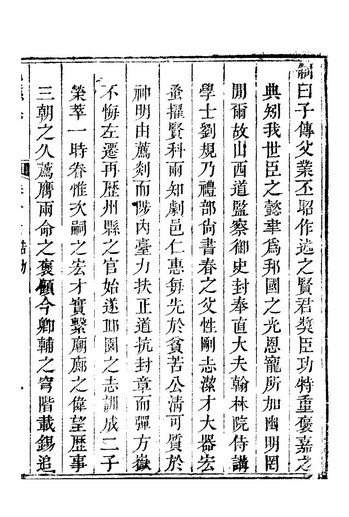 制曰子傳父業丕昭作述之賢君奬臣功特重褒嘉之
典矧我世臣之懿聿爲邦國之光恩寵所加幽明罔
閒爾故山西道監察御史封奉直大夫翰林院侍講
學士劉規乃禮部尚書春之父性剛志潔才大器宏
蚤擢賢科兩知劇邑仁惠每先於貧苦公淸可質於
神明由薦剡而陟內臺力扶正道抗封章而彈方嶽
不悔左遷再歷州縣之官始遂丘園之志訓成二子
榮萃一時眷惟次嗣之宏才實繫廟廊之偉望歷事
三朝之久薦膺兩命之褒顧今卿輔之穹階載錫追